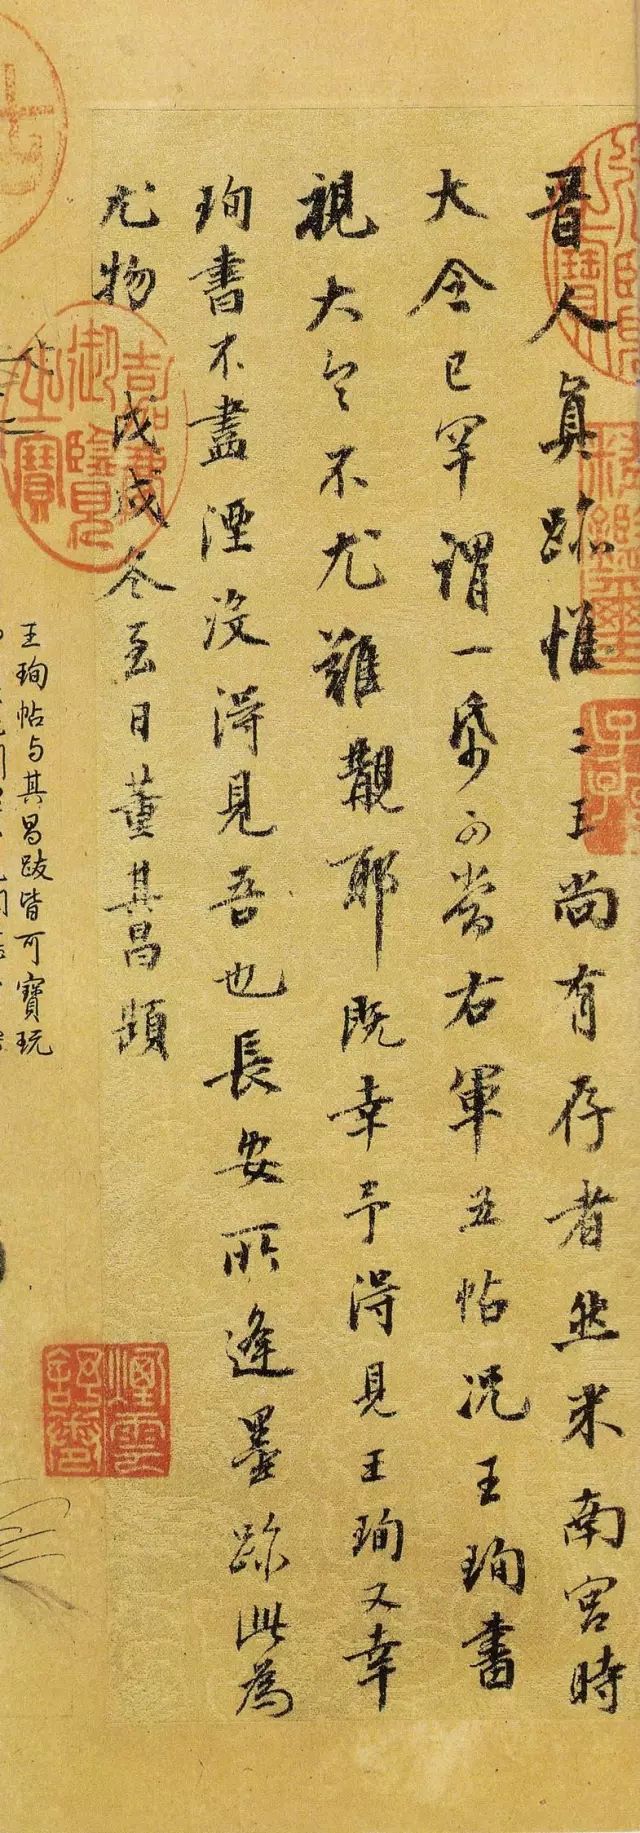 晉人真跡惟二王尚有存者然米南宮時
大令已罕謂一帋可當右軍五帖況王珣書
視大令不尤難覯耶既幸予得見王珣又幸
珣書不盡湮沒得見吾也長安所逢墨跡此為
尤物
戊戌冬至日董其昌題
王珣帖与其昌跋皆可寶玩
嘉慶御覽之寶
煙雲